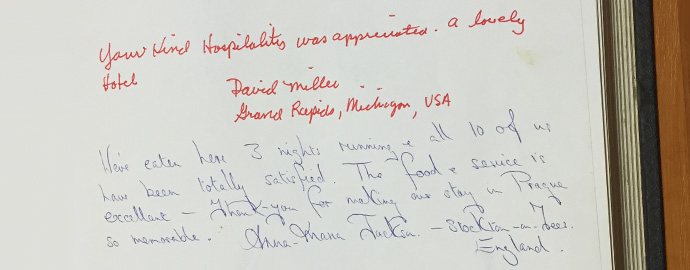 Your Kind Hospitalitis was appreciated. a lovely
Hotel
David Miller
Grand Rapids, Michigan, USA
We've eaten here 3 nights running & all 10 of us
have been totally satisfied. The food & service is
excellent - Thank-you for making our stay in Prague
so memorable. Jackson. - Stockton-on-Tees.
England.